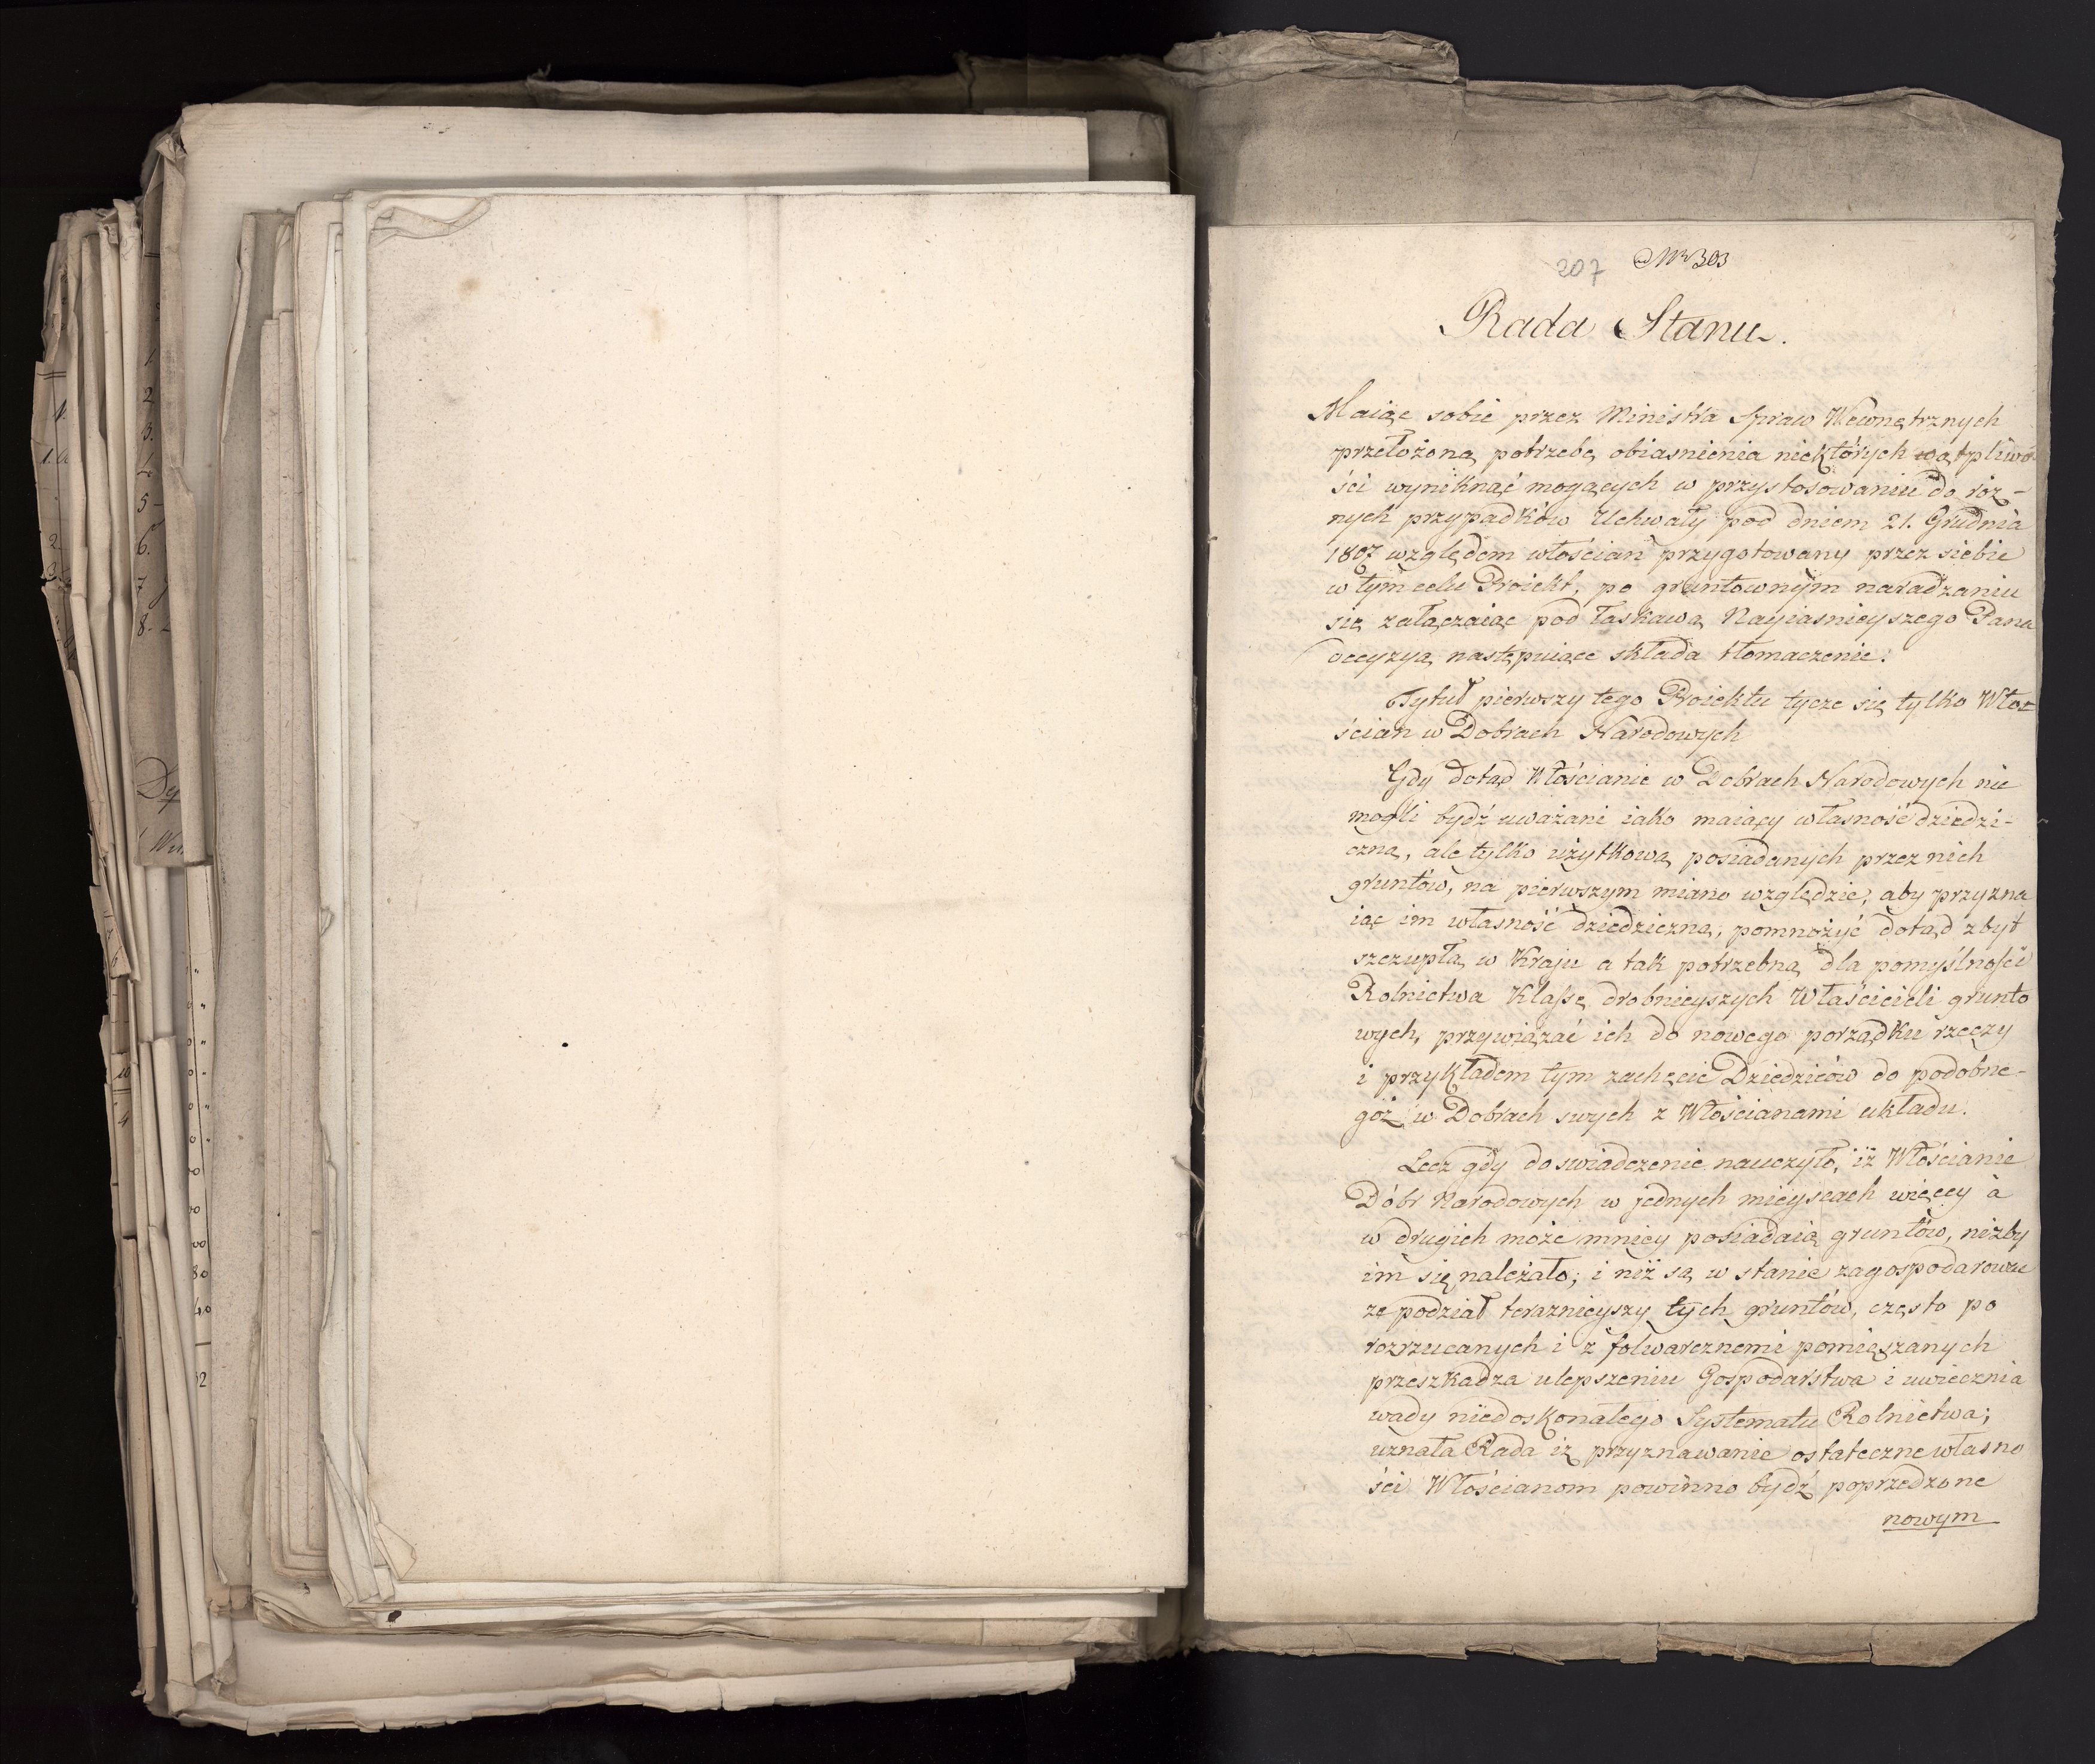 207 ad Nr 303
Rada Stanu.
Maiąc sobie przez Ministra Spraw Wewnętrznych
przełożoną potrzebę obiasnienia niektórych wątpliwo-
ści wyniknąć mogących w przystosowaniu do róż-
nych przypadków Uchwały pod dniem 21. Grudnia
1807 względem włościan przygotowany przez siebie
w tym celu Proiekt, po gruntownym naradzaniu
się załączaiąc pod łaskawą Nayiasnieyszego Pana
decyzyą następuiące składa tłomaczenie.
Tytuł pierwszy tego Proiektu tycze się tylko Wło-
ścian w Dobrach Narodowych
Gdy dotąd Włościanie w Dobrach Narodowych nie
mogli bydź uważani iako maiący własność dziedzi-
czną, ale tylko użytkową posiadanych przez nich
gruntów, na pierwszym miano względzie, aby przyzna
iąc im własność dziedziczną, pomnożyć dotąd zbyt
szczupłą w Kraju a tak potrzebną dla pomyślności
Rolnictwa Klassę drobnieyszych Właścicieli grunto
wych, przywiązać ich do nowego porządku rzeczy
i przykładem tym zachęcić Dziedziców do podobne-
goż w Dobrach swych z Włościanami układu.
Lecz gdy doswiadczenie nauczyło, iż Włościanie
Dóbr Narodowych w jednych mieyscach więcey a
w drugich może mniey posiadaią gruntów, niżby
im się należało; i niż są w stanie zagospodarować
że podział teraznieyszy tych gruntów, często po
rozrzucanych i z folwarcznemi pomięszanych
przeszkadza ulepszeniu Gospodarstwa i uwiecznia
wady niedoskonałego Systematu Rolnictwa;
uznała Rada iż przyznawanie ostateczne własno
ści Włościanom powinno bydź poprzedzone
nowym